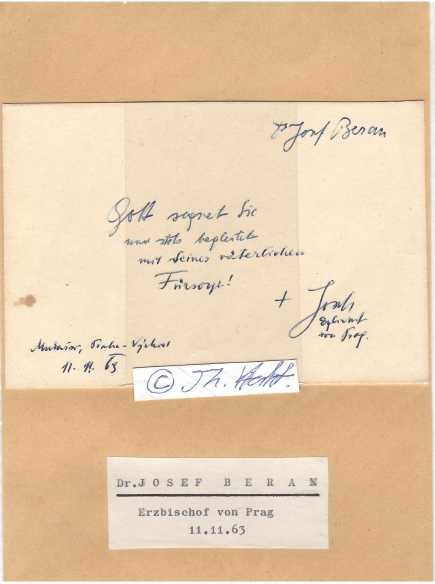 Josef Beran
Gott segnet Sie
und stets begleitet
mit Seiner väterlichen
Fürsorge!
+ Josef
Erzbischof
von Prag.
11. 11. 63
© Th.
Dr. JOSEF BERAN
Erzbischof von Prag
11.11.63